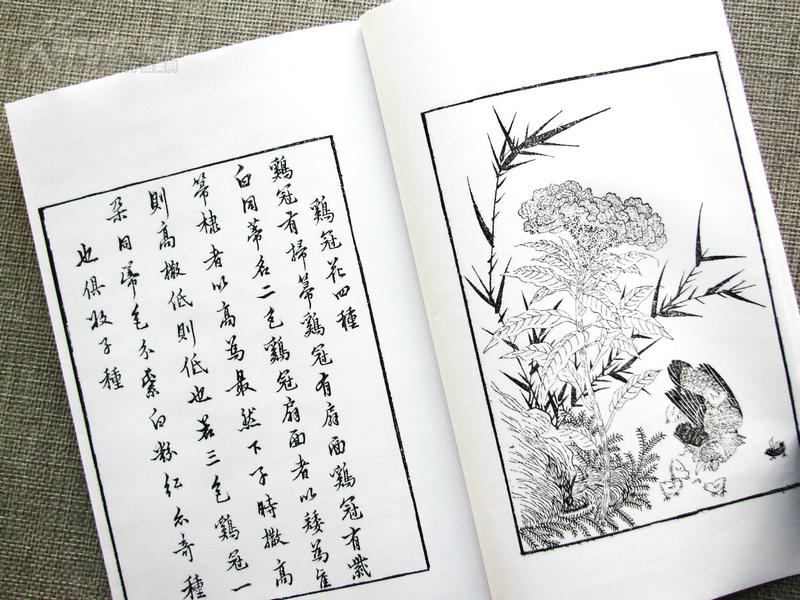 鷄冠花四種
鷄冠有掃帚鷄冠有扇面鷄冠有紫
白同蒂名二色鷄冠扇面者以矮為佳
帚者以高為最然下子時撒高
則高撒低則低也若三色鷄冠一
朶同蒂色分紫白粉紅亦奇種
也俱收子種